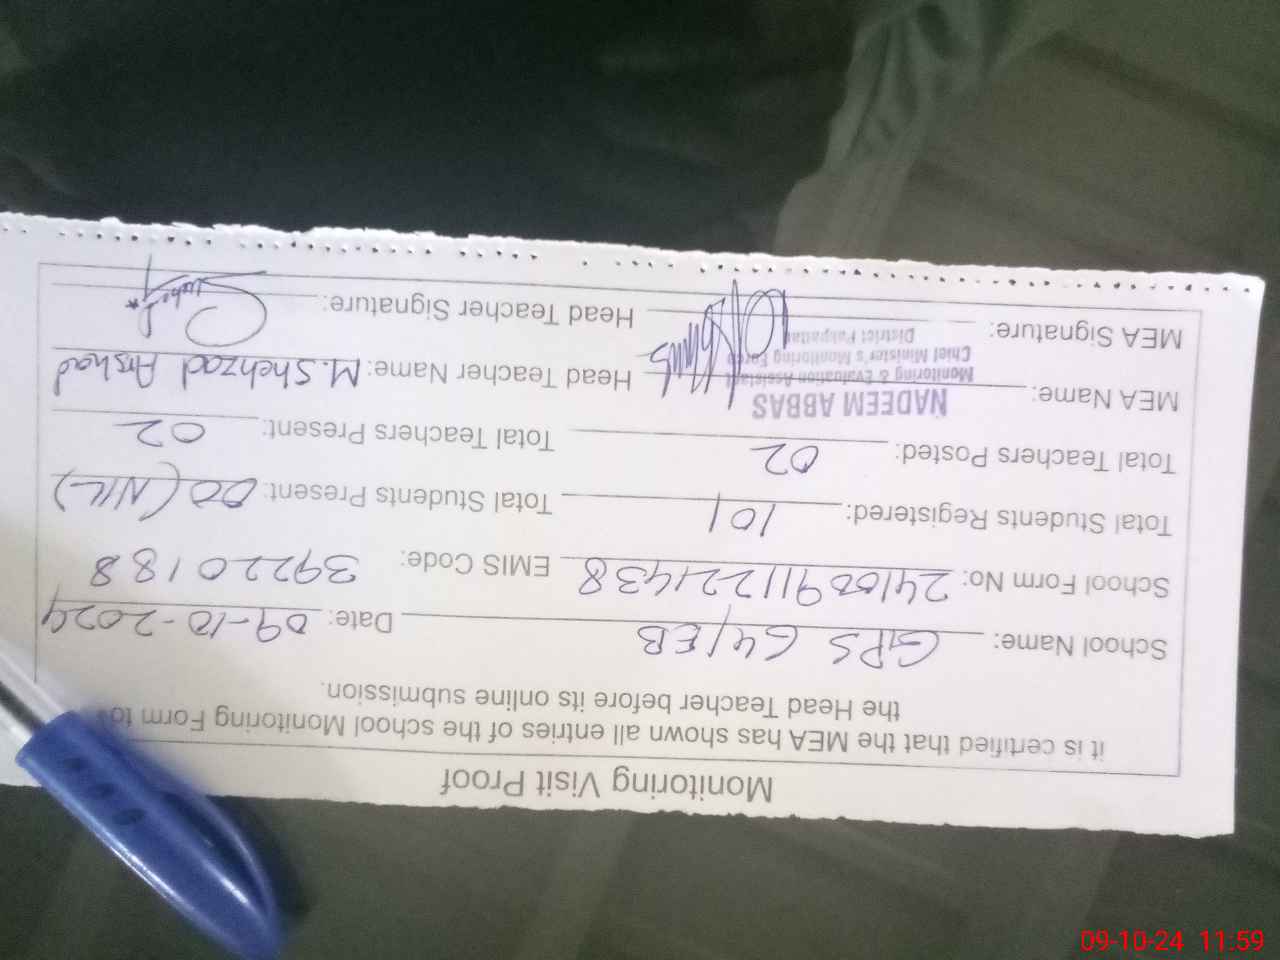 Monitoring Visit Proof
it is certified that the MEA has shown all entries of the school Monitoring Form to
the Head Teacher before its online submission.
School Name: GPS 64/EB Date: 09-10-2024
School Form No: 241009111221438 EMIS Code: 39220188
Total Students Registered: 101 Total Students Present: 00 (NIL)
Total Teachers Posted: 02 Total Teachers Present: 02
MEA Name: NADEEM ABBAS Head Teacher Name: M. Shehzad Arshad
Monitoring & Evaluation Assistant
Chief Minister's Monitoring Force
District Pakpattan
MEA Signature: Head Teacher Signature:
09-10-24 11:59